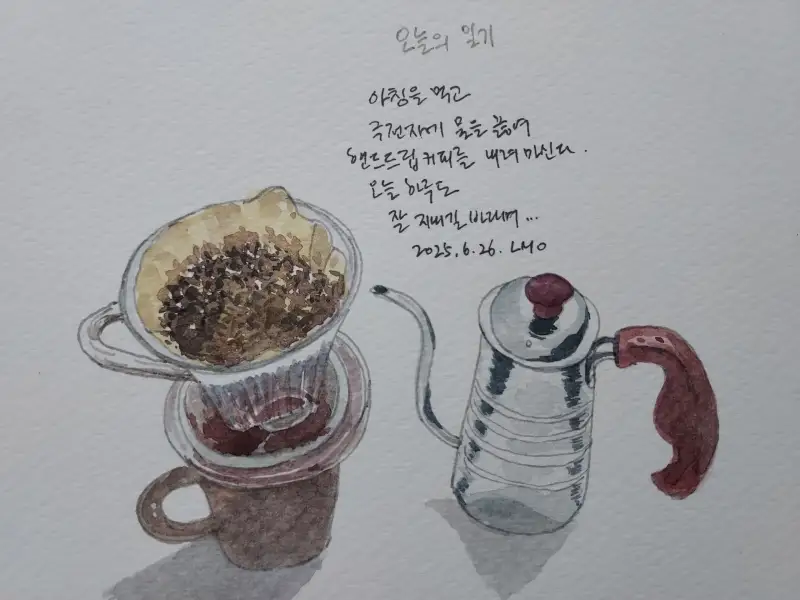 오늘의 일기
아침을 먹고
주전자에 물을 끓여
핸드드립 커피를 내려 마신다.
오늘 하루도
잘 지내길 바라며...
2025.6.26. LMO